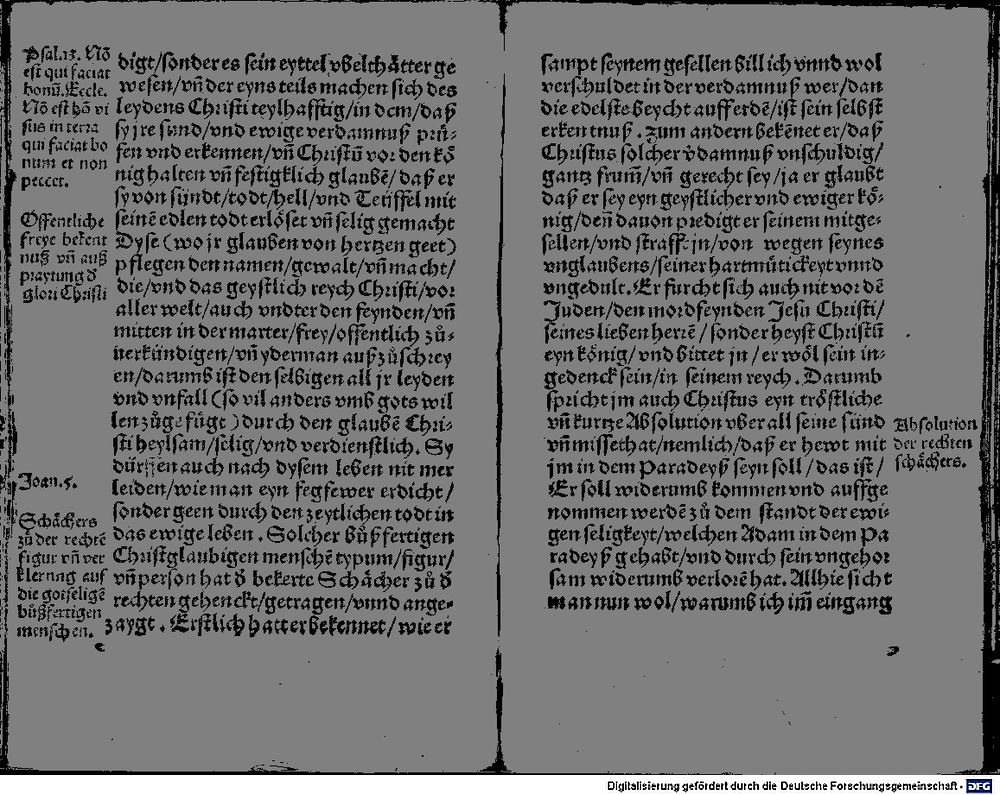 Psal.13. Nō
est qui faciat
bonū. Eccle.
Nō est hō vi
sus in terra
qui faciat bo
num et non
peccet.
Offentliche
freye bekent
nuß vñ auß
praytung d̕
glori Christi
Joan.5.
Schächers
zů der rechtē
figur vñ ver
klerung auf
die gotseligē
bůßfertigen
menschen.
digt/sonder es sein eyttel vbelthätter ge
wesen/vñ der eyns teils machen sich des
leydens Christi teylhafftig/in dem/daß
sy jre sünd/vnd ewige verdamnuß prü-
fen vnd erkennen/vñ Christū vor den kö
nig halten vñ festigklich glaubē/daß er
sy von sündt/todt/hell/vnd Teüffel mit
seinē edlen todt erlöset vñ selig gemacht
Dyse (wo jr glauben von hertzen geet)
pflegen den namen/gewalt/vñ macht/
die/vnd das geystlich reych Christi/vor
aller welt/auch vndter den feynden/vñ
mitten in der marter/frey/offentlich zů-
uerkündigen/vñ yderman auß zů schrey
en/darumb ist den selbigen all jr leyden
vnd vnfall (so vil anders vmb gots wil
len zůgefügt) durch den glaubē Chri-
sti heylsam/selig/vnd verdienstlich. Sy
dürffen auch nach dysem leben nit mer
leiden/wie man eyn fegfewer erdicht/
sonder geen durch den zeytlichen todt in
das ewige leben. Solcher bůßfertigen
Christglaubigen menschē typum/figur/
vñ person hat d̕ bekerte Schächer zů d̕
rechten gehenckt/getragen/vnnd ange-
zaygt. Erstlich hat er bekennet/wie er
sampt seynem gesellen billich vnnd wol
verschuldet in der verdamnuß wer/dan
die edelste beycht aufferdē/ist sein selbst
erkentnuß. zum andern bekēnet er/daß
Christus solcher v̄damnuß vnschuldig/
gantz frum̄/vñ gerecht sey/ja er glaubt
daß er sey eyn geystlicher vnd ewiger kö-
nig/deñ dauon prediget er seinem mitge-
sellen/vnd strafft jn/von wegen seynes
vnglaubens/seiner hartmütickeyt vnnd
vngedult. Er furcht sich auch nit vor dē
Juden/den mordfeynden Jesu Christi/
seines lieben herrē/sonder heyst Christū
eyn könig/vnd bittet jn/er wöl sein in-
gedenck sein/in seinem reych. Darumb
spricht jm auch Christus eyn tröstliche
vñ kurtze Absolution vber all seine sünd
vñ missethat/nemlich/daß er hewt mit
jm in dem Paradeyß seyn soll/das ist/
Er soll widerumb kommen vnd auffge
nommen werdē zů dem standt der ewi-
gen seligkeyt/welchen Adam in dem Pa
radeyß gehabt/vnd durch sein vngehor
sam widerumb verlorē hat. Allhie sicht
man nun wol/warumb ich im̄ eingang
Absolution
der rechten
schächers.
Digitalisierung gefördert durch die Deutsche Forschungsgemeinschaft - DFG